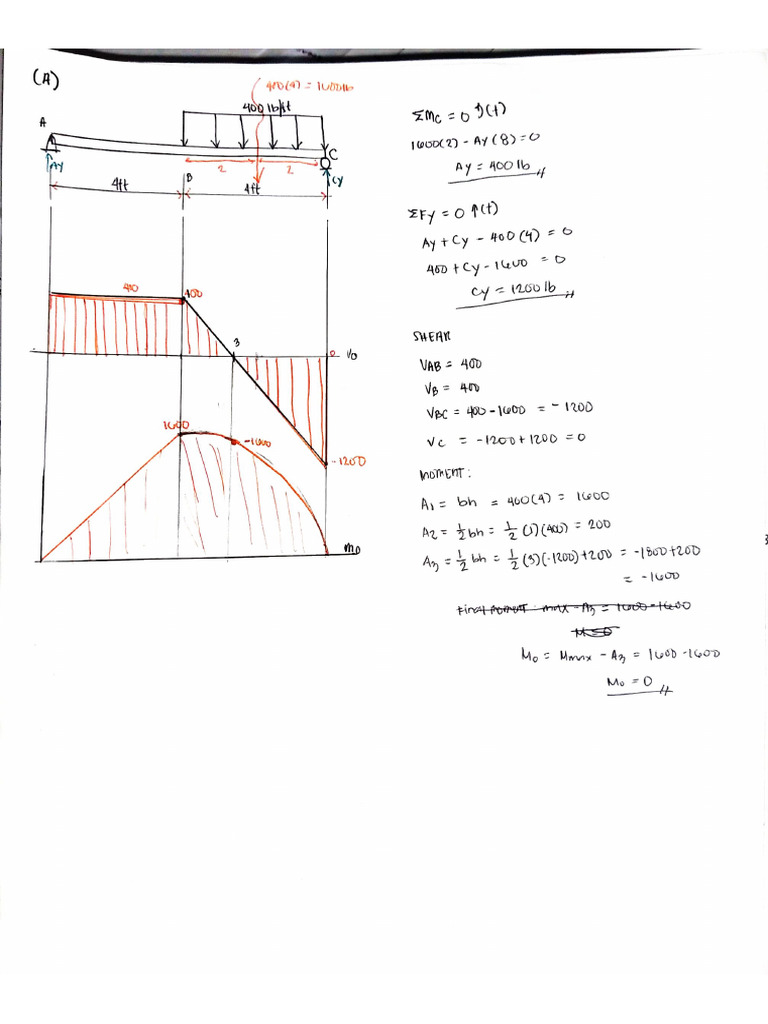 (A)
400(4) = 1600lb
400 lb/ft
A
C
Ay
2
2
Cy
4ft
B
4ft
400
400
3
0
V0
1600
-1600
-1200
M0
ΣMc = 0 ↺(+)
1600(2) - Ay (8) = 0
Ay = 400 lb
ΣFy = 0 ↑(+)
Ay + Cy - 400 (4) = 0
400 + Cy - 1600 = 0
Cy = 1200 lb
SHEAR
VAB = 400
VB = 400
VBC = 400 - 1600 = - 1200
Vc = -1200 + 1200 = 0
MOMENT:
A1 = bh = 400(4) = 1600
A2 = 1/2 bh = 1/2 (1)(400) = 200
A3 = 1/2 bh = 1/2 (3)(-1200) + 200 = -1800 + 200
= -1600
Final moment: max - A3 = 1600 - 1600
M = 0
M0 = Mmax - A3 = 1600 - 1600
M0 = 0